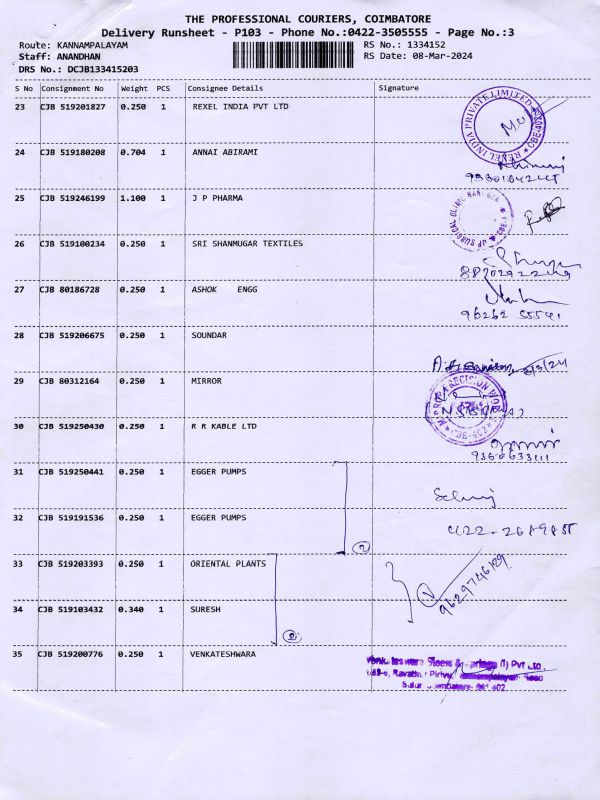 THE PROFESSIONAL COURIERS, COIMBATORE
Delivery Runsheet - P103 - Phone No.:0422-3505555 - Page No.:3
Route: KANNAMPALAYAM RS No.: 1334152
Staff: ANANDHAN RS Date: 08-Mar-2024
DRS No.: DCJB133415203
S No Consignment No Weight PCS Consignee Details Signature
23 CJB 519201827 0.250 1 REXEL INDIA PVT LTD
REXEL INDIA PRIVATE LIMITED
24 CJB 519180208 0.704 1 ANNAI ABIRAMI
25 CJB 519246199 1.100 1 J P PHARMA
26 CJB 519100234 0.250 1 SRI SHANMUGAR TEXTILES
27 CJB 80186728 0.250 1 ASHOK ENGG
96262 55541
28 CJB 519206675 0.250 1 SOUNDAR
29 CJB 80312164 0.250 1 MIRROR
30 CJB 519250430 0.250 1 R R KABLE LTD
31 CJB 519250441 0.250 1 EGGER PUMPS
32 CJB 519191536 0.250 1 EGGER PUMPS
33 CJB 519203393 0.250 1 ORIENTAL PLANTS
9629746129
34 CJB 519103432 0.340 1 SURESH
35 CJB 519200776 0.250 1 VENKATESHWARA